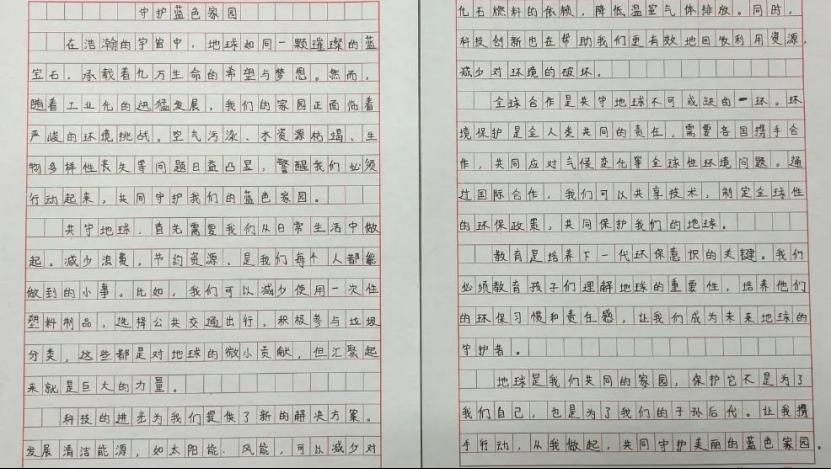 守护蓝色家园
在浩瀚的宇宙中，地球如同一颗璀璨的蓝
宝石，承载着亿万生命的希望与梦想。然而，
随着工业化的迅猛发展，我们的家园正面临着
严峻的环境挑战。空气污染、水资源枯竭、生
物多样性丧失等问题日益凸显，警醒我们必须
行动起来，共同守护我们的蓝色家园。
共守地球，首先需要我们从日常生活中做
起。减少浪费，节约资源，是我们每个人都能
做到的小事。比如，我们可以减少使用一次性
塑料制品，选择公共交通出行，积极参与垃圾
分类，这些都是对地球的微小贡献，但汇聚起
来就是巨大的力量。
科技的进步为我们提供了新的解决方案。
发展清洁能源，如太阳能、风能，可以减少对
化石燃料的依赖，降低温室气体排放。同时，
科技创新也在帮助我们更有效地回收利用资源，
减少对环境的破坏。
全球合作是共守地球不可或缺的一环。环
境保护是全人类共同的责任，需要各国携手合
作，共同应对气候变化等全球性环境问题。通
过国际合作，我们可以共享技术，制定全球性
的环保政策，共同保护我们的地球。
教育是培养下一代环保意识的关键。我们
必须教育孩子们理解地球的重要性，培养他们
的环保习惯和责任感，让我们成为未来地球的
守护者。
地球是我们共同的家园，保护它不是为了
我们自己，也是为了我们的子孙后代。让我携
手行动，从我做起，共同守护美丽的蓝色家园。